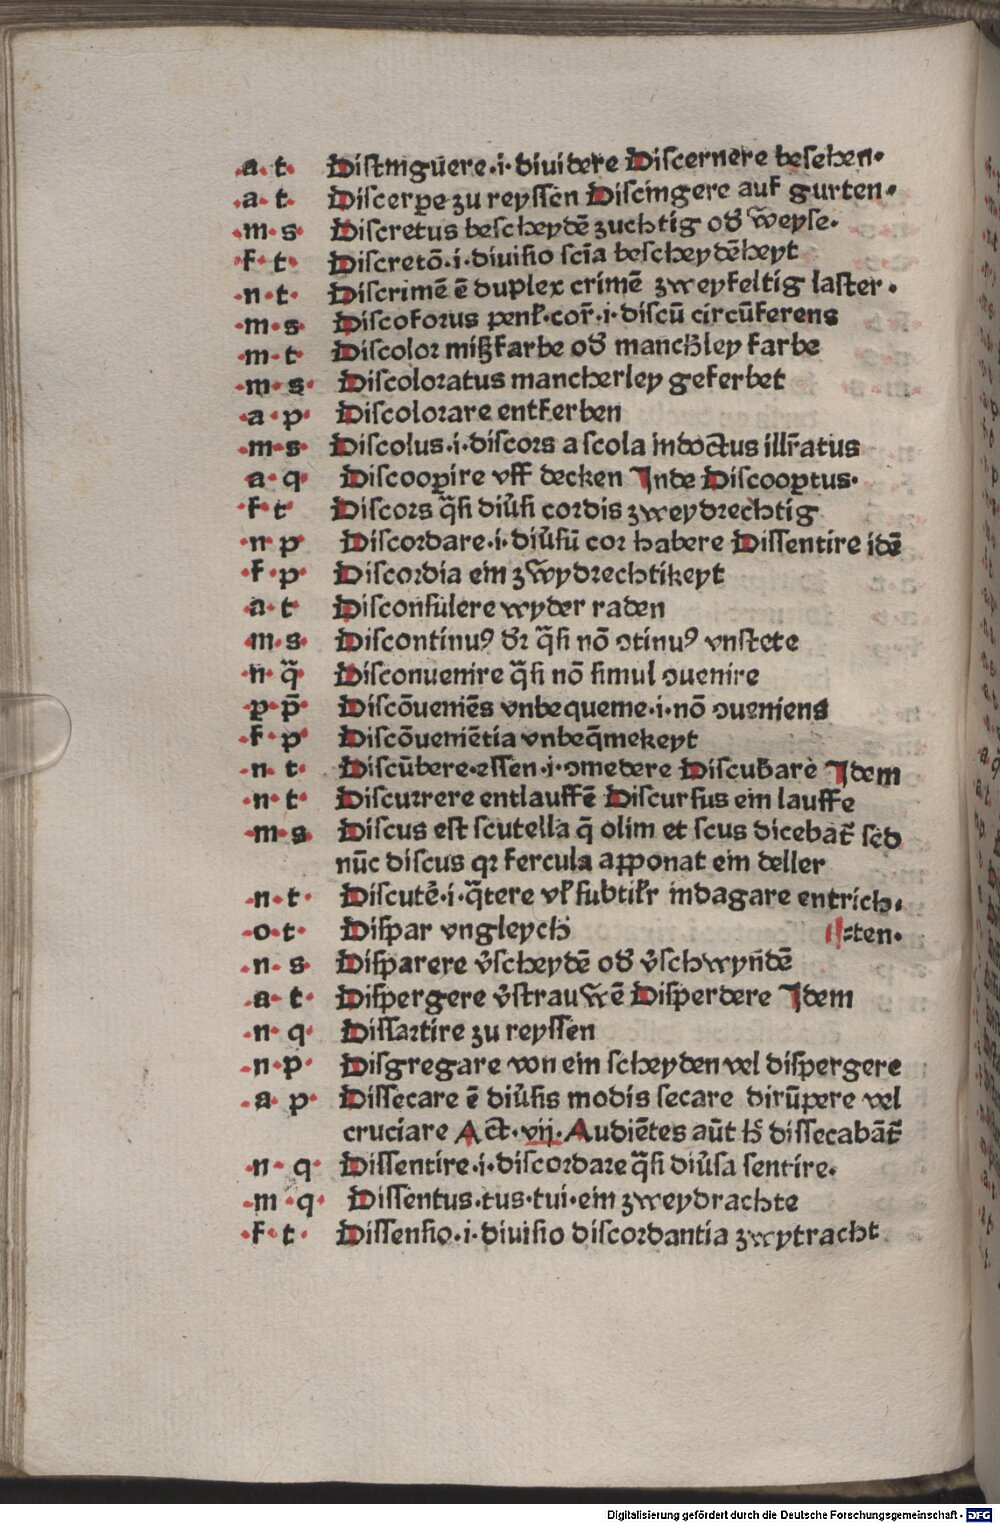 ·a· t· Distinguere·i·dividere Discernere besehen·
·a· t· Discerꝑe zu reyssen Discingere auf gurten·
·m· s· Discretus bescheydē zuchtig od̕ w̄eyse·
·f· t· Discretō·i·divisio scīa bescheydēheyt
·n· t· Discrimē ē duplex crimē zweyfeltig laster·
·m· s· Discoforus penl̕·cor̄·i·discū circūferens
·m· t· Discolor mißfarbe od̕ manch̕ley farbe
·m· s· Discoloratus mancherley geferbet
·a· p· Discolorare entferben
·m· s· Discolus·i·discors a scola indoctus illr̄atus
·a· q· Discooꝑire vff decken Inde Discooꝑtus·
·f· t Discors q̄si diu̕si cordis zweydrechtig
·n p· Discordare·i·diu̕sū cor habere Dissentire idē
·f· p· Discordia ein zwydrechtikeyt
·a· t Disconsulere wyder raden
m· s· Discontinuꝰ d̕r q̄si nō ɔtinuꝰ vnstete
·n· q̄· Disconuenire q̄si nō simul ɔuenire
·p· p̄· Discōueniēs vnbequeme·i·nō ɔueniens
·f· p· Discōueniētia vnbeq̄mekeyt
·n· t· Discūbere·essen·i·ɔmedere Discub̕are Idem
·n· t· Discurrere entlauffē Discursus ein lauffe
·m· s· Discus est scutella q̄ olim et scus dicebat̄ sed
nūc discus qꝛ fercula apponat ein deller
·n· t· Discutē·i·q̄tere vl̕ subtil̕r indagare entrich·
·o· t· Dispar vngleych ⸗ten·
·n· s· Disparere v̕scheydē od̕ v̕schwyn̄dē
·a· t· Dispergere v̕strauwē Disperdere Idem
·n· q· Dissartire zu reyssen
·n· p· Disgregare von ein scheyden vel dispergere
·a· p· Dissecare ē diu̕sis modis secare dirūpere vel
cruciare Act·vij·Audiētes aūt h̕ dissecabāt̄
·n· q· Dissentire·i·discordare q̄si diu̕sa sentire·
·m· q· Dissentus·tus·tui·ein zweydrachte
·f· t· Dissensio·i·divisio discordantia zwytracht
Digitalisierung gefördert durch die Deutsche Forschungsgemeinschaft - DFG